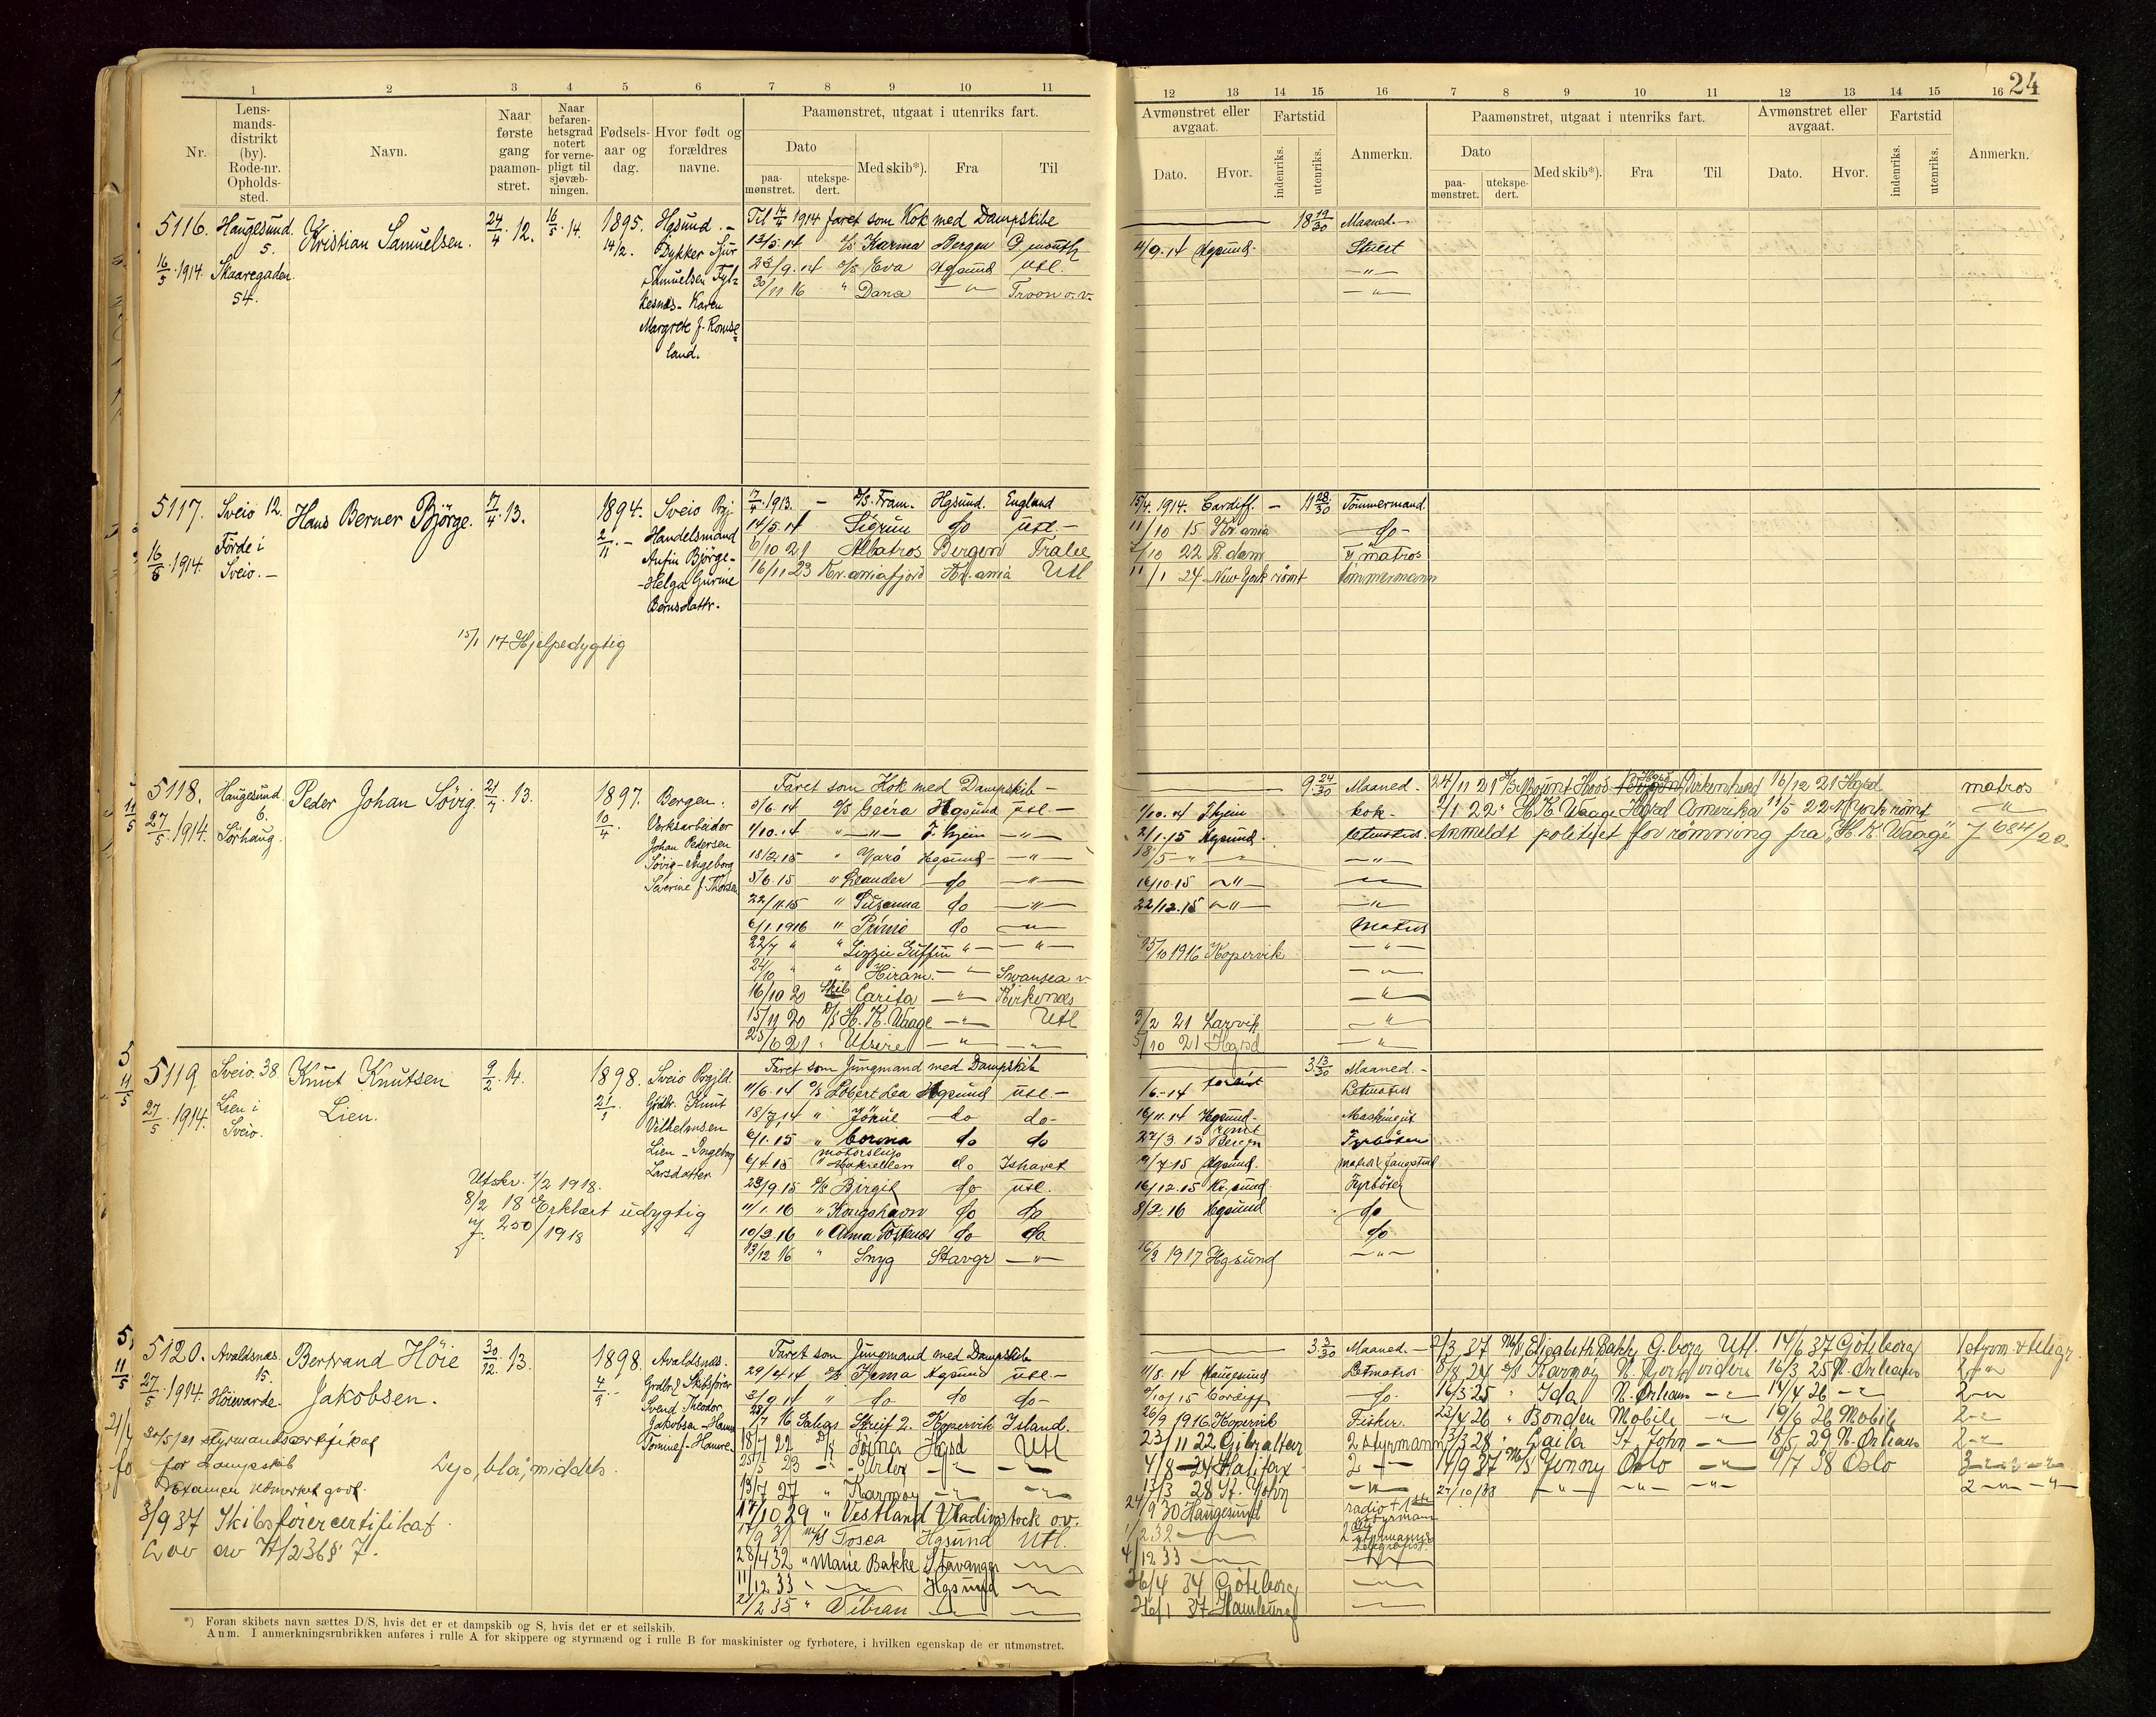 24
1 2 3 4 5 6 7 8 9 10 11
12 13 14 15 16 7 8 9 10 11 12 13 14 15 16
Nr.
Lens-
mands-
distrikt
(by).
Rode-nr.
Opholds-
sted.
Navn.
Naar
første
gang
paamøn-
stret.
Naar
befaren-
hetsgrad
notert
for verne-
pligt til
sjøvæb-
ningen.
Fødsels-
aar og
dag.
Hvor født og
forældres
navne.
Paamønstret, utgaat i utenriks fart.
Dato
paa-
mønstret.
utekspe-
dert.
Med skib*).
Fra
Til
Avmønstret eller
avgaat.
Dato.
Hvor.
Fartstid
indenriks.
utenriks.
Anmerkn.
Paamønstret, utgaat i utenriks fart.
Dato
paa-
mønstret.
utekspe-
dert.
Med skib*).
Fra
Til
Avmønstret eller
avgaat.
Dato.
Hvor.
Fartstid
indenriks.
utenriks.
Anmerkn.
5116. Haugesund. Kristian Samuelsen. 24/4. 12. 16/5. 14. 1895. Hgsund. -
5.
14/2. Dykker Sjur
16/5. 1914. Skaaregaden
54.
Samuelsen
Karen
Margrete f. Romse
land.
Til 14/4 1914 faret som Kok med Dampskibe
13/5. 14 D/S Karma Bergen
23/9. 14 D/S Eva Hgsund Utl.
30/11 16 " Dana - " - Troon o.v.
18 19/30 Maaned -
4/9. 14 Hgsund. Stuert
- " -
- " -
5117. Sveio 12. Hans Berner Bjørge. 17/4. 13. 1894. Sveio Prgj.
2/11. - Handelsmand
16/5. 1914. Førde i
Sveio. -
Anfin Bjørge -
- Helga Gurine
Bernsdattr.
15/1 17 Hjelpedygtig
17/4. 1913. - D/S. Fram. Hgsund. England
14/5. 14 Sigrun do Utl. -
6/10 21 Albatros Bergen Tralee
16/11 23 Kr.aniafjord Kr.ania Utl
15/4. 1914. Cardiff. - 11 28/30 Tømmermand.
11/10 15 Kr.ania - do -
7/10 22 R.dam matros
11/1 24 New York rømt tømmermann
5118. Haugesund. Peder Johan Søvig. 21/4. 13. 1897. Bergen.
6.
10/4. Verksarbeider
27/5. 1914. Sørhaug.
Johan Pedersen
Søvig - Ingeborg
Severine f. Thorsen
Faret som Kok med Dampskib -
5/6. 14 D/S Geira Hgsund Utl -
1/10. 14 " - " - T.hjem - " -
18/2. 15 " Varø Hgsund - - " -
5/6. 15 " Leander - do - " -
22/11. 15 " Susanna do - " -
6/1. 1916 " Primo do - " -
22/7 " " Lizzie Griffin " - - " -
24/10 " " Hiram. - " - Swansea v
16/10 20 Skib Carita - " - Kirkenæs
15/11 20 D/S H. K. Waage - " - Utl
25/6 21 " Utsire - " - - " -
9 24/30 Maaned.
1/10. 14 T.hjem kok -
2/1. 15 Hgsund. letmatros.
18/5 - " - - " -
16/10. 15 - " - - " -
22/12. 15 - " - - " -
Matros
25/10 1916 Kopervik - " -
- " -
- " -
3/2 21 Larvik - " -
5/10 21 Hgsd - " -
24/11 21 D/S Mount Hood Birkenhead 16/12 21 Hgsd matros
2/1 22 " H. K. Waage Hgsd Amerika 11/5 22 N. York rømt - " -
Anmeldt politiet for rømning fra "H. K. Waage" J 684/22
5119. Sveio. 38. Knut Knutsen 9/2. 14. 1898. Sveio Prgjld.
Lien.
21/1. Grdbr. Knut
27/5. 1914. Lien i
Sveio.
Vilhelmsen
Lien - Ingeborg
Larsdatter
Utskr. 1/2 1918.
8/2 18 Erklært udygtig
J. 250/1918
Faret som Jungmand med Dampskib
11/6. 14 D/S Robert Lea Hgsund Utl. -
18/7. 14 " Jøkul - do - do -
6/1. 15 " Corona do do
6/4. 15 motorslup Makrellen do Ishavet
23/9. 15 D/S Birgit do Utl.
11/1. 16 " Kongshavn do do
10/2. 16 " Anna Tostenæs do do
13/12 16 " Snyg Stavgr - " -
3 13/30 Maaned. -
1/6. - 14 Letmatros
16/11. 14 Hgsund - Maskingut
27/3. 15 rømt Bergen Fyrbøter
9/7. 15 Hgsund. matros fangstmd
16/12. 15 Kr.sund. Fyrbøter
8/2. 16 Hgsund do
do
16/2 1917 Hgsund - " -
5120. Avaldsnæs. Bertrand Höie 30/12. 13. 1898. Avaldsnæs.
15. Jakobsen.
4/9. - Grdbr. & Skibsfører
27/5. 1914. Höievarde.
Svend Theodor
Jakobsen - Hanna
Tomine f. Hauvre.
20/5/21 styrmandscertifikat
for dampskib
Examen utmerket godt.
Lys, blå, middels.
3/9 37 Skibsførercertifikat
Lov av 7/2 36 § 7.
Faret som Jungmand med Dampskib
29/4. 14 D/S Hema Hgsund Utl -
2/9. 14 " do do do -
28/7 16 Galeas Streif 2. Kopervik Island.
18/7 22 D/S Hgsd Utl
25/5 23 - " - Urter - " - - " -
13/7 27 " Karmøy - " - - " -
17/10 29 " Vestland Vladivostock o.v.
17/9 31 M/S Tosca Hgsund Utl.
28/4 32 " Marie Bakke Stavanger - " -
11/12 33 " - " - Hgsund - " -
21/2 35 " Vibran - " - - " -
3 3/30 Maaned. -
11/8. 14 Haugesund Letmatros
9/10. 15 Cardiff - do -
26/9 1916 Kopervik Fisker.
23/11 22 Gibraltar 2 styrmann
4/8 - 24 Halifax 2 - " -
13/3 28 St. John - " -
24/9 30 Haugesund radio + 1ste styrman
1/2 32 - " - 2 styrmann telegrafist.
4/12 33 - " - - " -
26/4 34 Göteborg - " -
26/1 37 Hamburg - " -
2/3 37 M/S Elisabeth Bakke G.borg Utl. 14/6 37 Göteborg 1 styrm. & telegr.
8/8 24 D/S Karmøy N. York videre 16/3 25 N. Orleans 2 - " -
16/3 25 " Ida N. Orlean - " - 14/4 26 - " - 2 - " -
23/4 26 " Bonden Mobile - " - 19/6 26 Mobile 2 - " -
13/3 28 " Gaila St. John - " - 18/5 29 N. Orleans 2 - " -
14/9 37 M/S Jenny Oslo - " - 9/7 38 Oslo
27/10/38 - " - - " - - " - 2 - " -
*) Foran skibets navn sættes D/S, hvis det er et dampskib og S, hvis det er et seilskib.
Anm. I anmerkningsrubrikken anføres i rulle A for skippere og styrmænd og i rulle B for maskinister og fyrbøtere, i hvilken egenskap de er utmønstret.